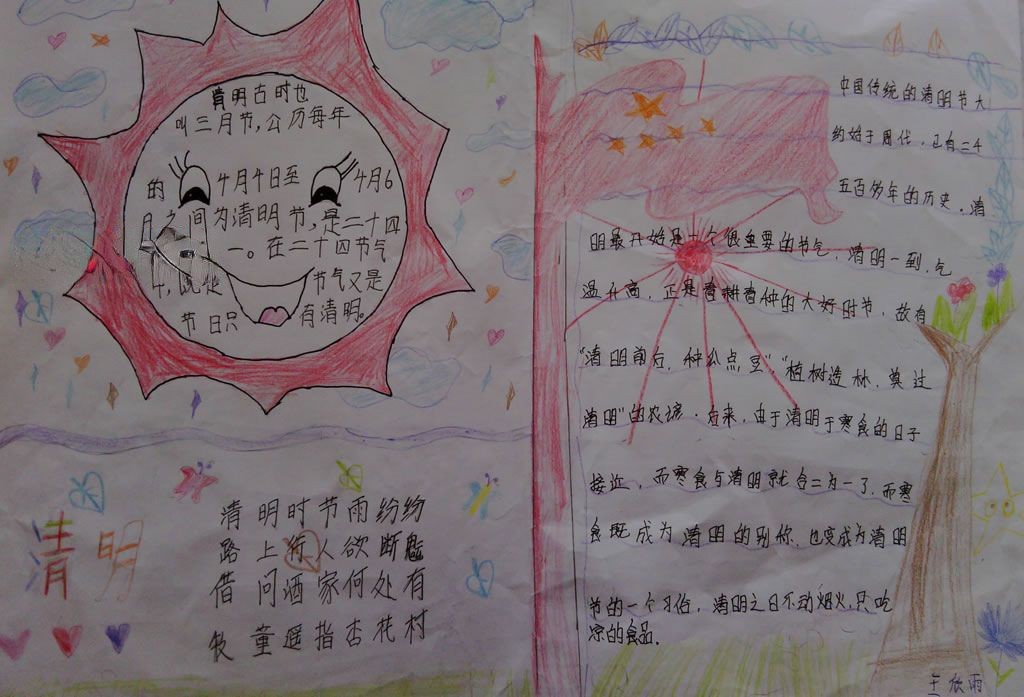 清明古时也
叫三月节,公历每年
的 4月4日至 4月6
日之间为清明节,是二十四
一。在二十四节气
节气又是
节日只 有清明。
清明
清明时节雨纷纷
路上行人欲断魂
借问酒家何处有
牧童遥指杏花村
中国传统的清明节大
约始于周代,已有二千
五百多年的历史。清
明最开始是一个很重要的节气,清明一到,气
温升高,正是春耕春种的大好时节,故有
"清明前后,种么点豆","植树造林,莫过
清明"的农谚。后来,由于清明于寒食的日子
接近,而寒食与清明就合二为一了,而寒
食既成为清明的别你,也变成为清明
节的一个习俗,清明之日不动烟火,只吃
凉的食品。
王欣雨